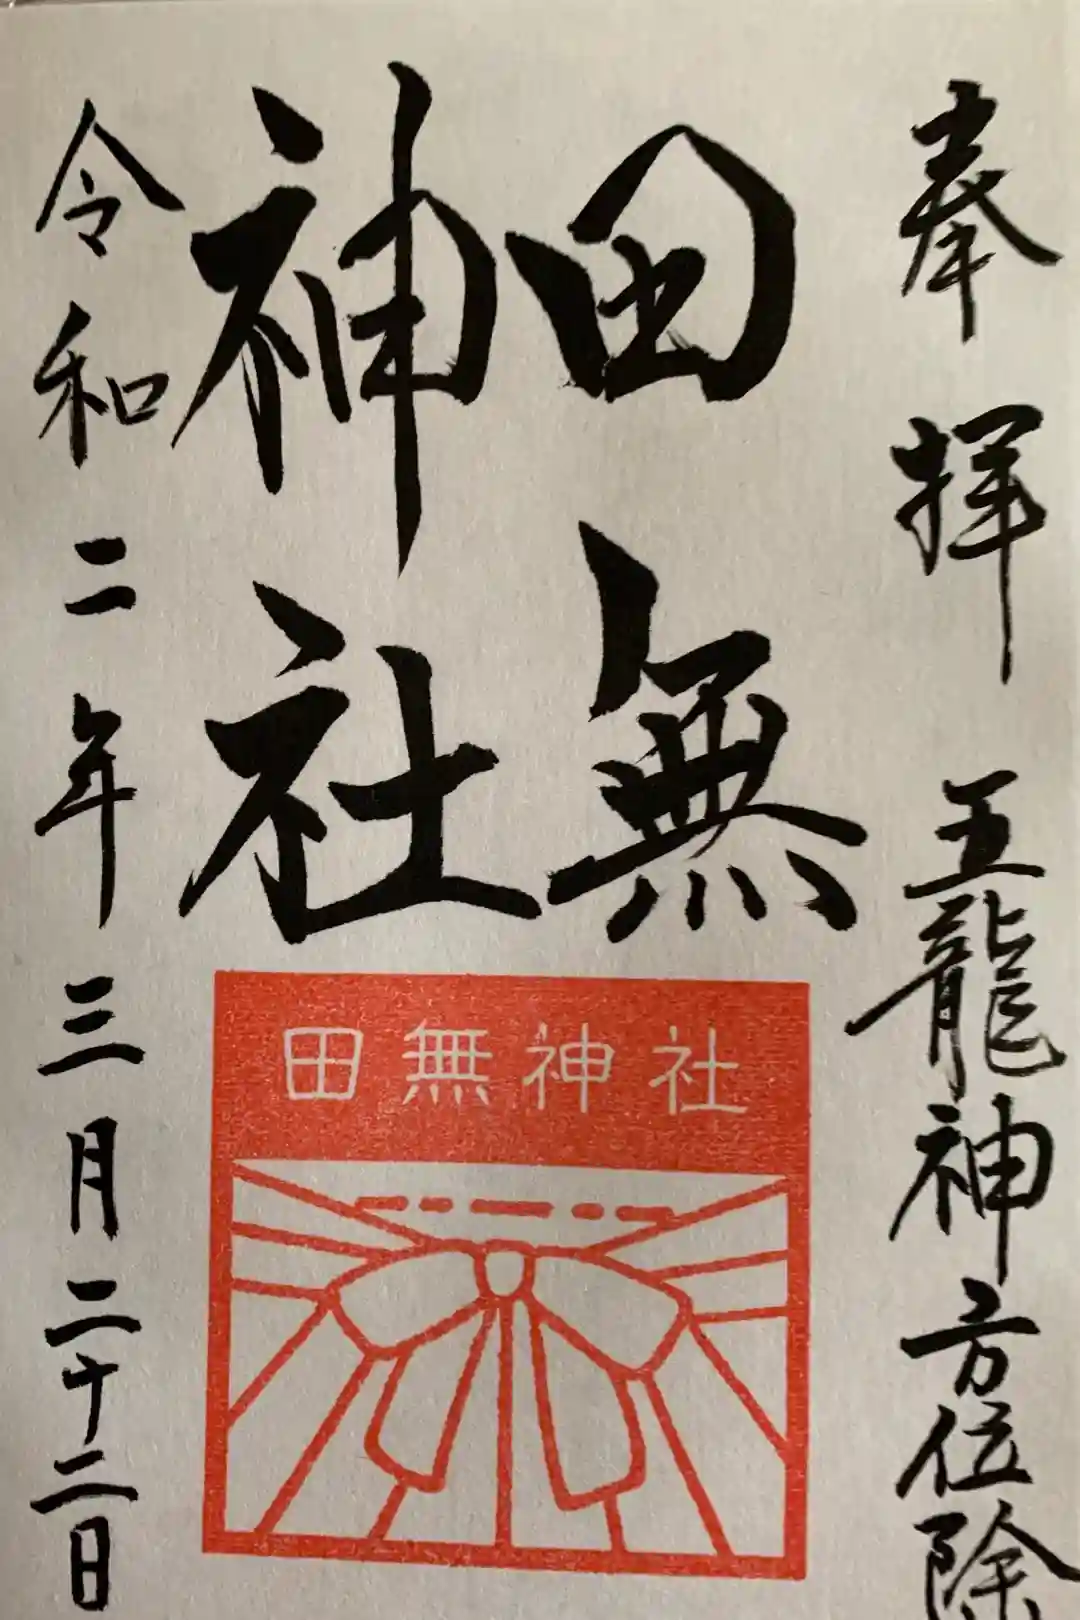 奉拝 五龍神方位除
田無
神社
令和二年三月二十二日
田無神社